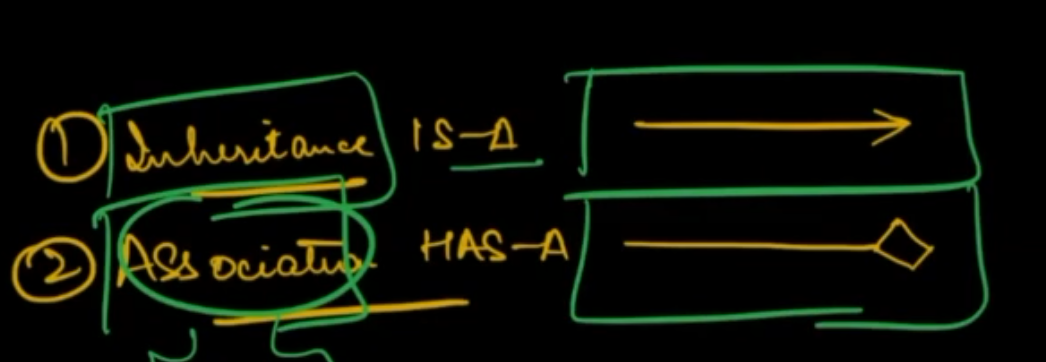 ① Inheritance IS-A
② Association HAS-A